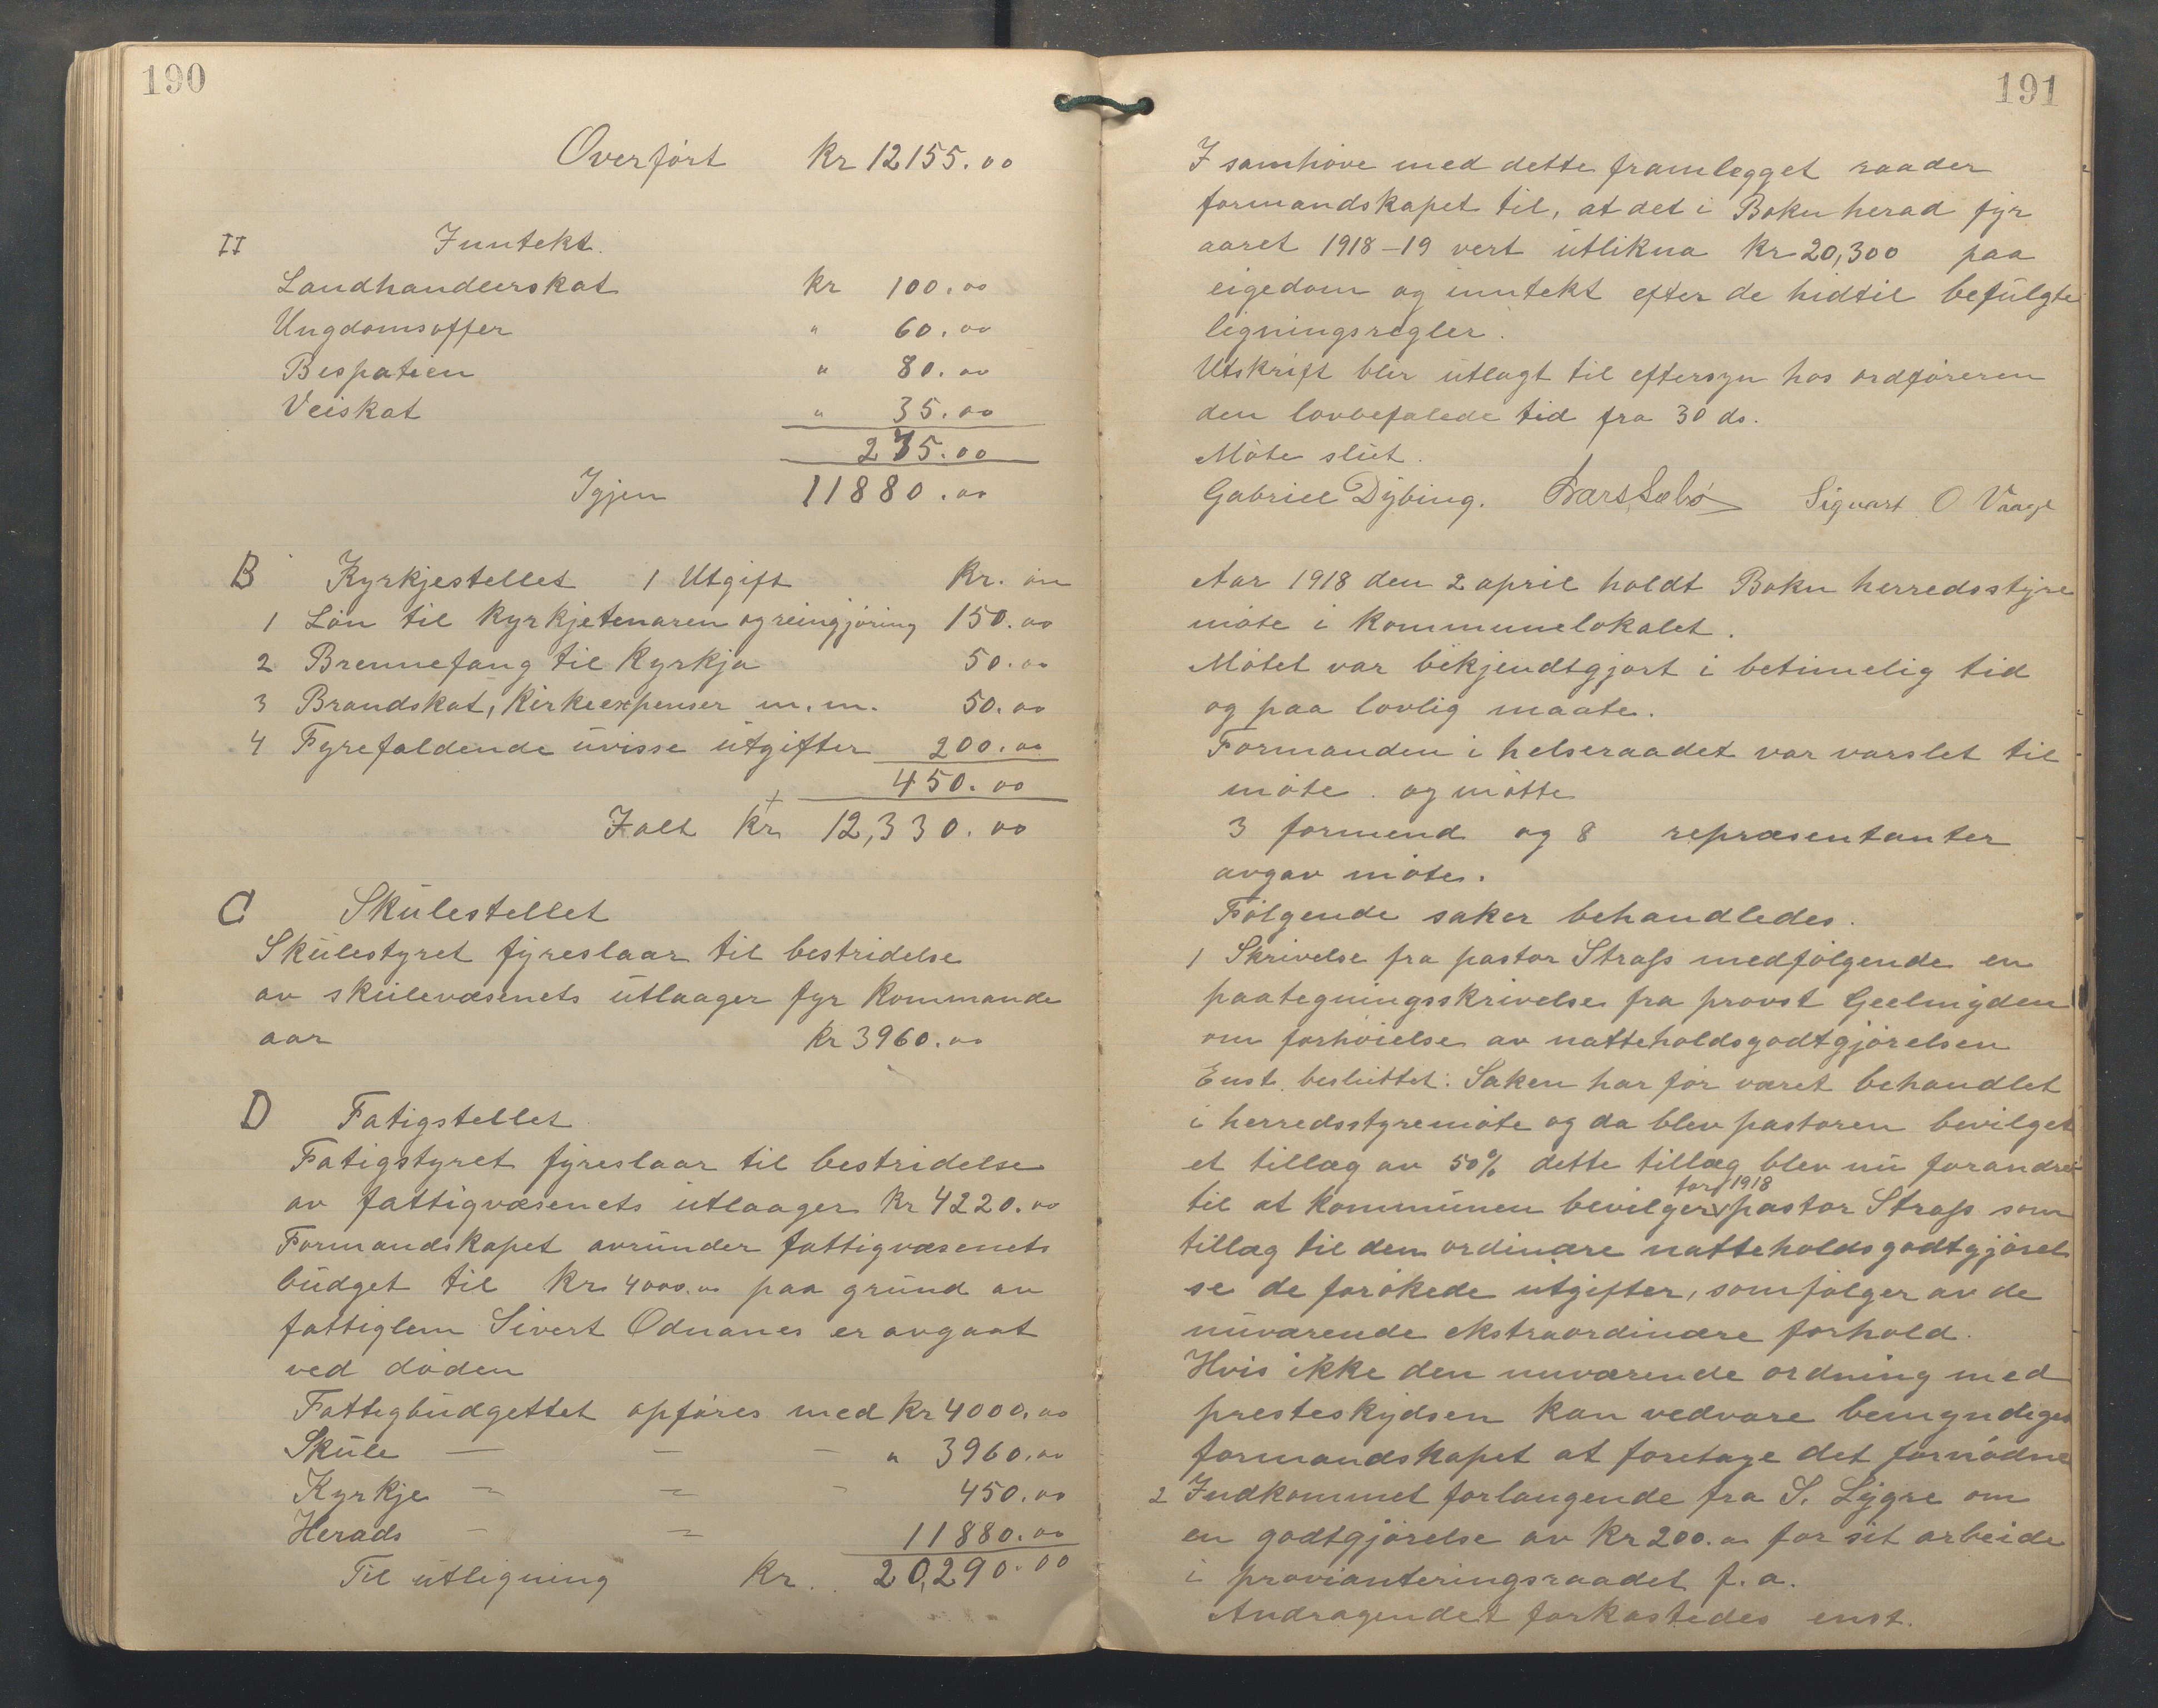 190
Overført Kr 12155.00
II Inntekt.
Landhandlerskat Kr 100.00
Ungdomsoffer " 60.00
Bespatien " 80.00
Veiskat " 35.00
275.00
Igjen 11880.00
B Kyrkjestellet 1 Utgift Kr. ør
1 Løn til kyrkjetenaren og reingjøring 150.00
2 Brennefang til kyrkja 50.00
3 Brandskat, Kirkeexpenser m.m. 50.00
4 Fyrefaldende uvisse utgifter 200.00
450.00
Ialt Kr 12,330.00
C Skulestellet
Skulestyret fyreslaar til bestridelse
av skulevæsenets utlaager fyr kommande
aar Kr 3960.00
D Fatigstellet.
Fatigstyret fyreslaar til bestridelse
av fattigvæsenets utlaager Kr 4220.00
Formandskapet avrunder fattigvæsenets
budget til Kr 4000.00 paa grund av
fattiglem Sivert Odnanes er avgaat
ved døden
Fattigbudgettet opføres med Kr 4000.00
Skule — — — " 3960.00
Kyrkje — — — 450.00
Herads — — 11880.00
Til utligning Kr. 20,290.00
191
I samhøve med dette framlegget raader
formandskapet til, at det i Bokn herad fyr
aaret 1918-19 vert utlikna Kr 20,300 paa
eigedom og inntekt efter de hidtil befulgte
ligningsregler.
Utskrift blir utlagt til eftersyn hos ordføreren
den lovbefalede tid fra 30 ds.
Møte slut.
Gabriel Dybing. Lars Sæbø Sigvart O Vaage
Aar 1918 den 2 april holdt Bokn herredsstyre
møte i Kommunelokalet.
Møtet var bekjendtgjort i betimelig tid
og paa lovlig maate.
Formanden i helseraadet var varslet til
møte. og møtte
3 formend og 8 repræsentanter
avgav møte.
Følgende saker behandledes.
1 Skrivelse fra pastor Strass medfølgende en
paategningsskrivelse fra provst Geelmyden
om forhøielse av natteholdsgodtgjørelsen
Enst. besluttet: Saken har før været behandlet
i herredsstyremøte og da blev pastoren bevilget
et tillæg av 50% dette tillæg blev nu forandret
til at kommunen bevilger for 1918 pastor Strass som
tillæg til den ordinære natteholdsgodtgjørel
se de forøkede utgifter, som følger av de
nuværende ekstraordinære forhold.
Hvis ikke den nuværende ordning med
presteskydsen kan vedvare bemyndiges
formandskapet at foretage det fornødne
2 Indkommet forlangende fra S. Lygre om
en godtgjørelse av Kr 200.00 for sit arbeide
i provianteringsraadet f.a.
Andragendet forkastedes enst.